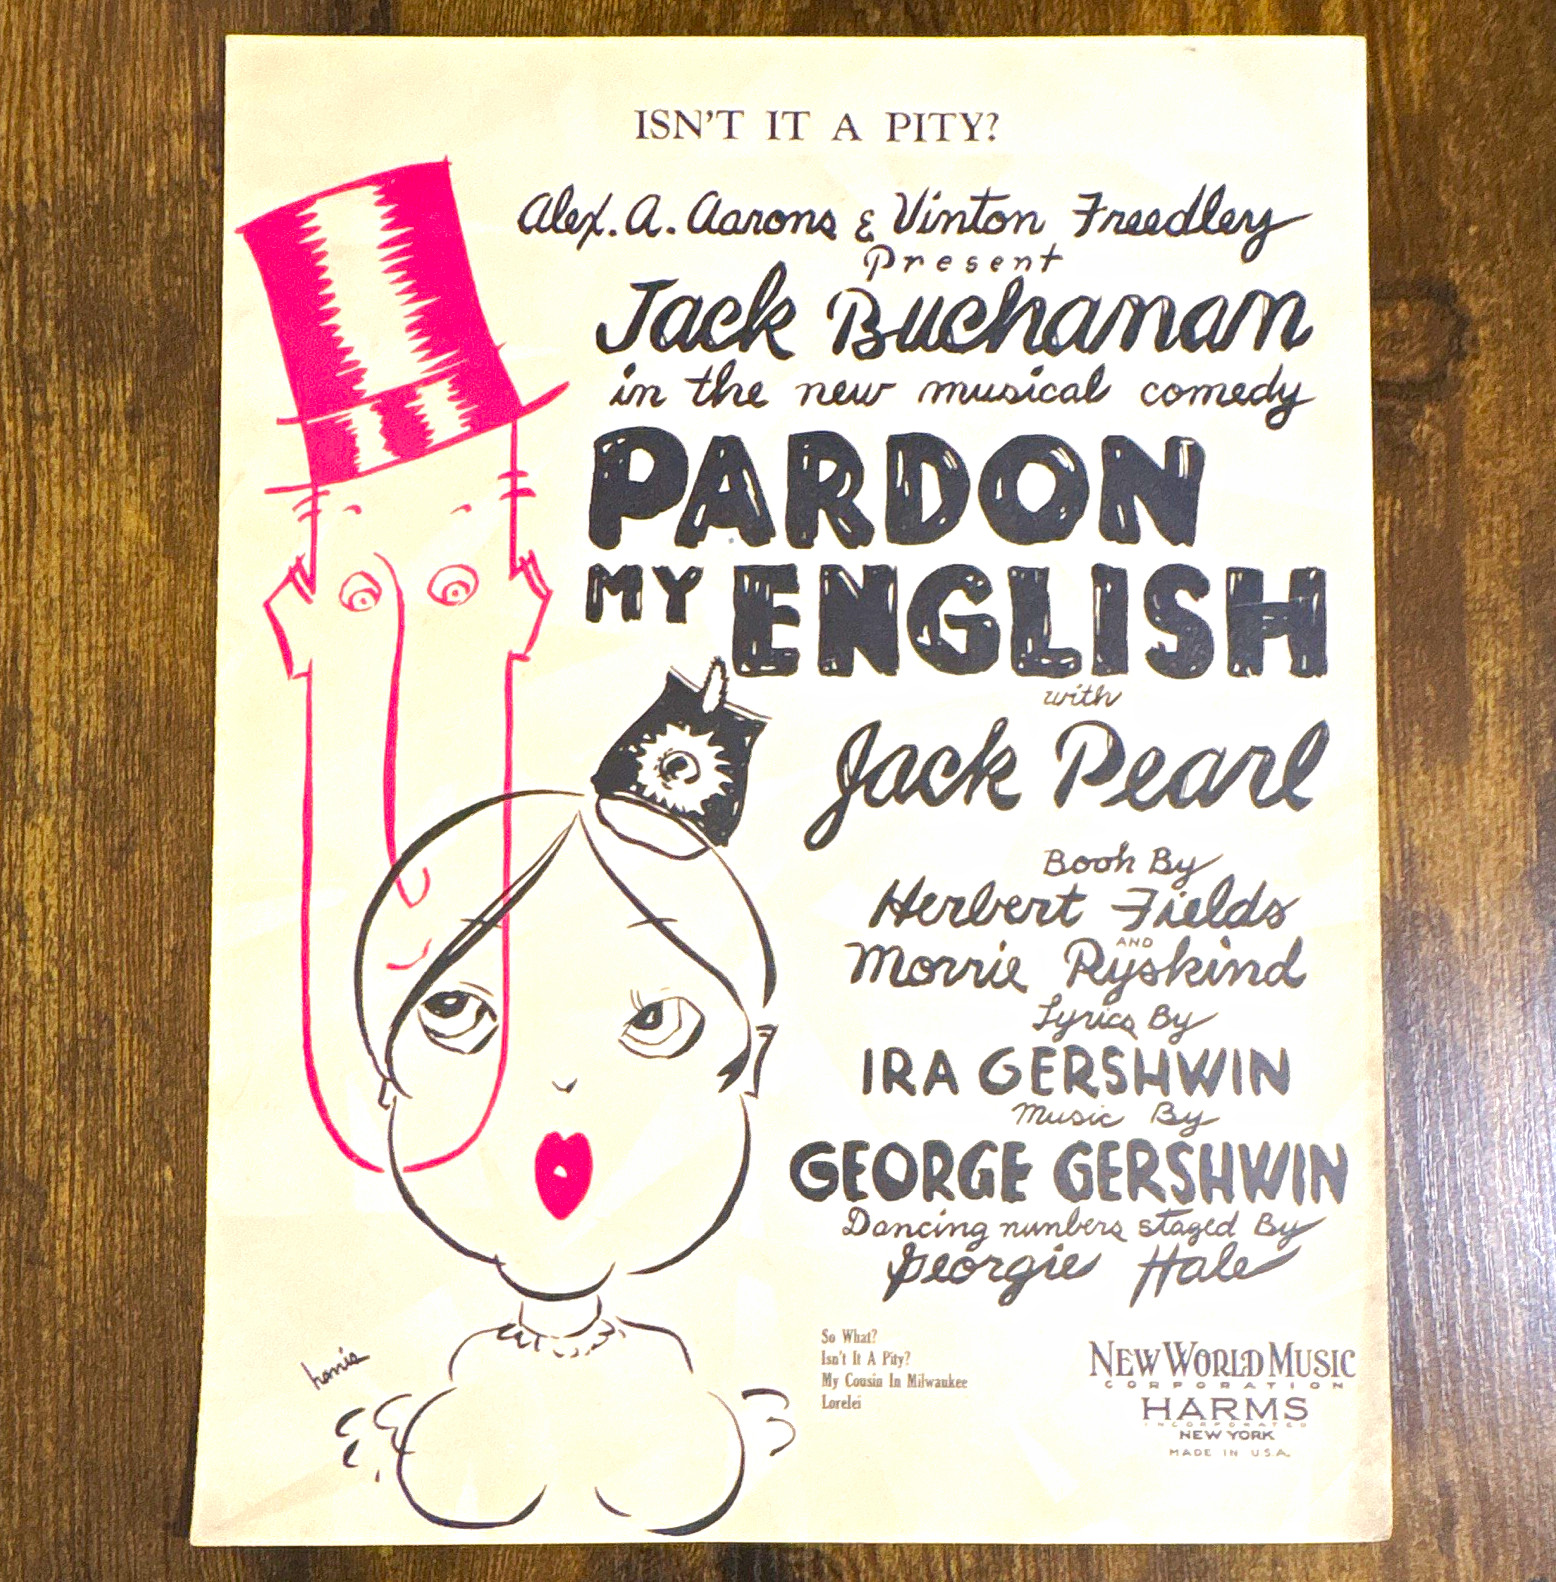 ISN'T IT A PITY?
Alex. A. Aarons & Vinton Freedley
Present
Jack Buchanan
in the new musical comedy
PARDON
MY ENGLISH
with
Jack Pearl
Book By
Herbert Fields
AND
Morrie Ryskind
Lyrics By
IRA GERSHWIN
Music By
GEORGE GERSHWIN
Dancing numbers staged By
Georgie Hale
So What?
Isn't It A Pity?
My Cousin In Milwaukee
Lorelei
NEW WORLD MUSIC
CORPORATION
HARMS
INCORPORATED
NEW YORK
MADE IN U.S.A.